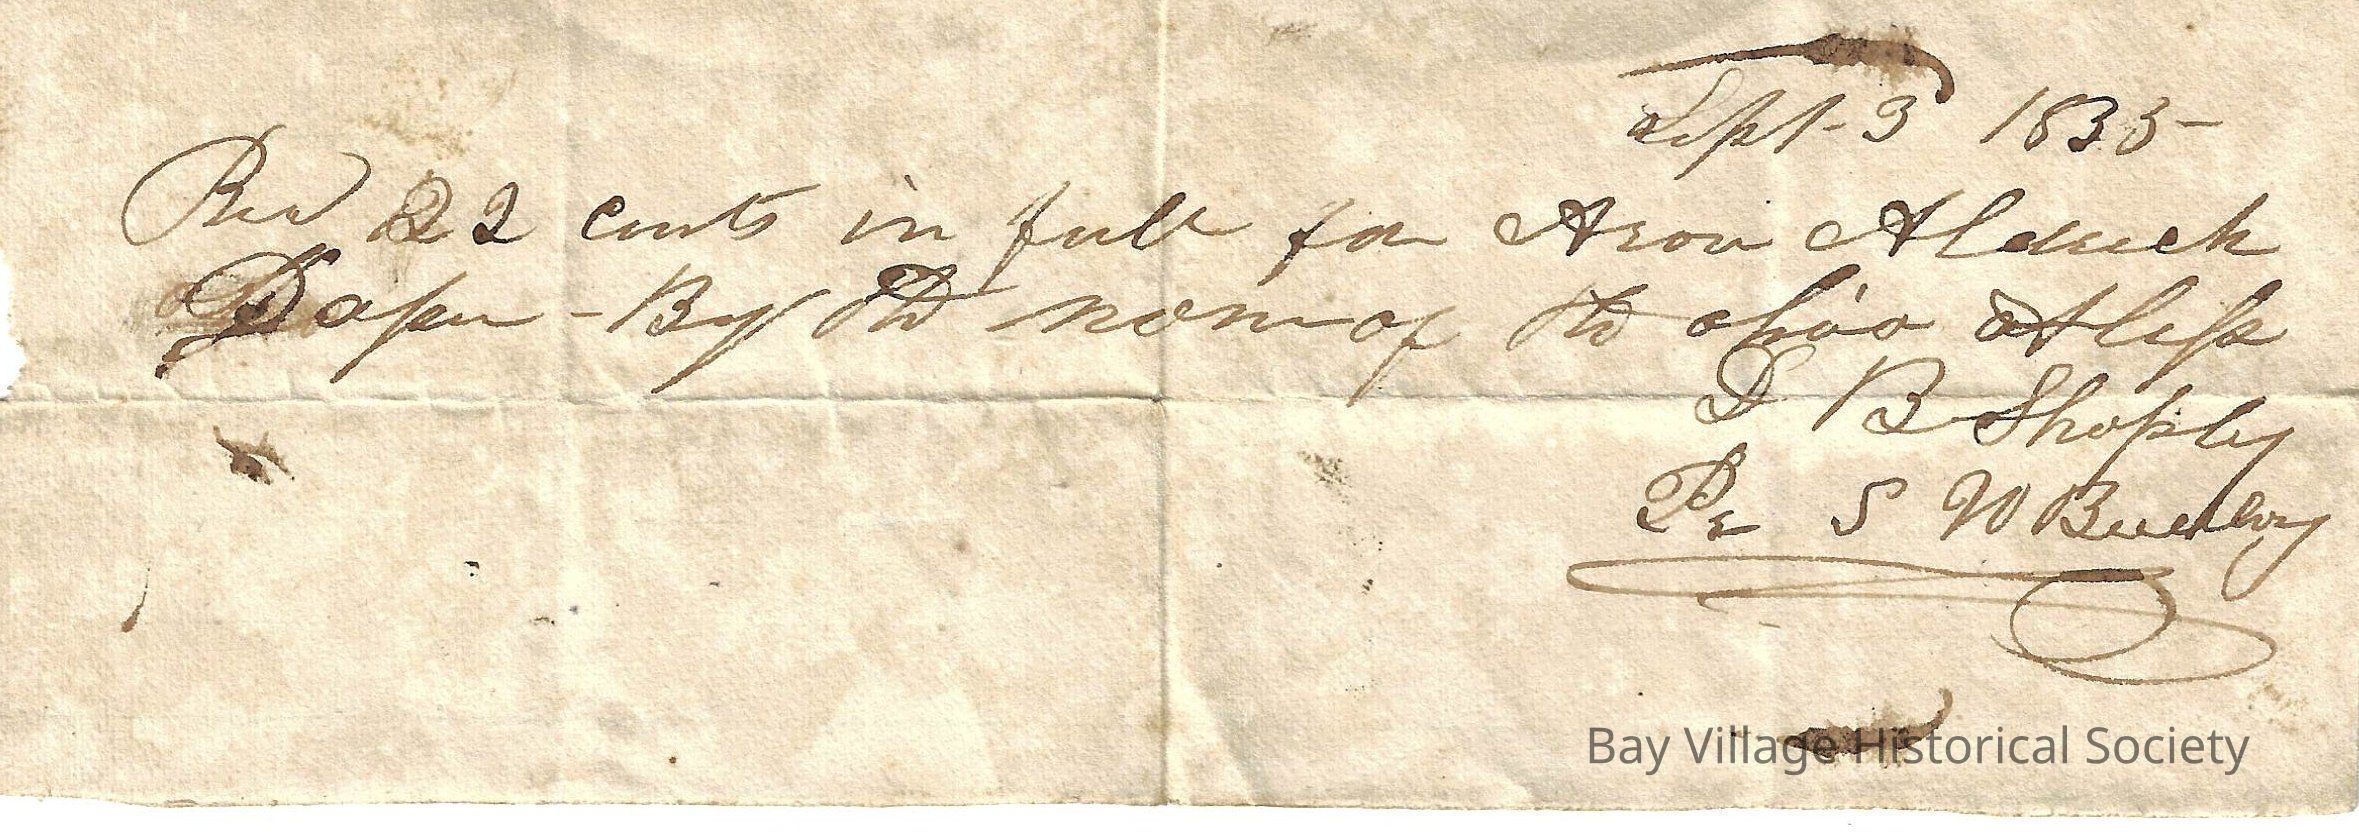 Sept - 3 1835 -
Recd 22 cents in full for Aron Aldrich
Paper - By the name of the ohio atlas
D B Shoply
Pr S W
Bay Village Historical Society